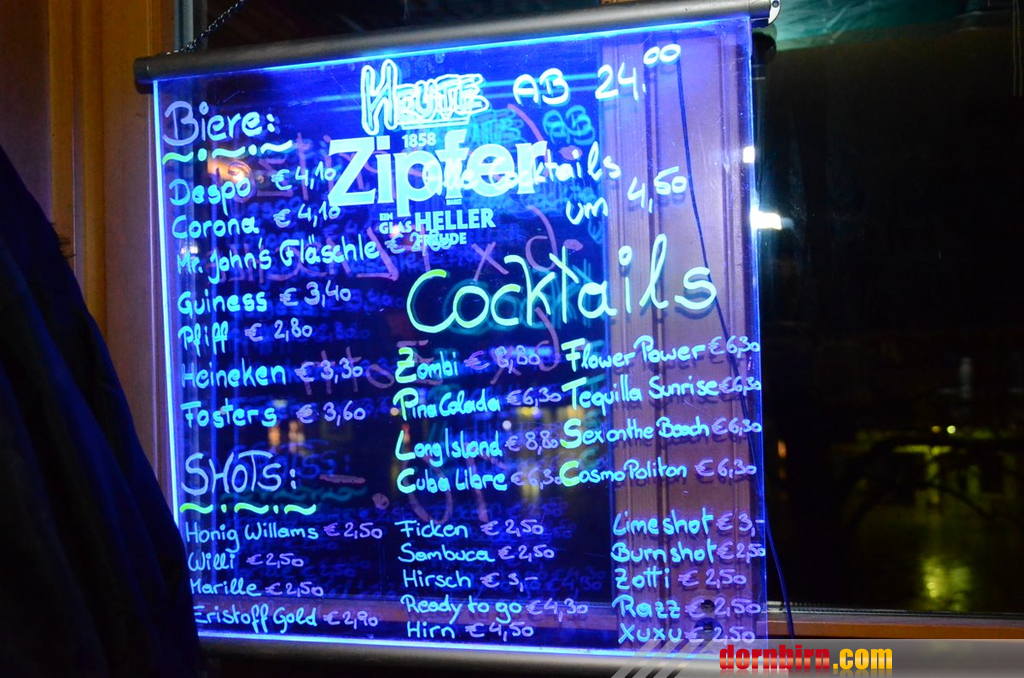 Heute AB 24.00
Alle Cocktails
um 4,50
1858
Zipfer
EIN GLAS HELLER FREUDE
Biere:
Despo € 4,10
Corona € 4,10
Mr. John's Fläschle €
Guiness € 3,40
Pfiff € 2,80
Heineken € 3,30
Fosters € 3,60
Cocktails
Zombi € 8,80
Pina Colada € 6,30
Long Island € 8,80
Cuba Libre € 6,30
Flower Power € 6,30
Tequilla Sunrise € 6,30
Sex on the Beach € 6,30
CosmoPoliton € 6,30
SHOTS:
Honig Willams € 2,50
Willi € 2,50
Marille € 2,50
Eristoff Gold € 2,90
Ficken € 2,50
Sambuca € 2,50
Hirsch € 3,-
Ready to go € 4,30
Hirn € 4,50
Limeshot € 3,-
Burnshot € 2,50
Zotti € 2,50
Razz € 2,50
XuXu € 2,50
dornbirn.com